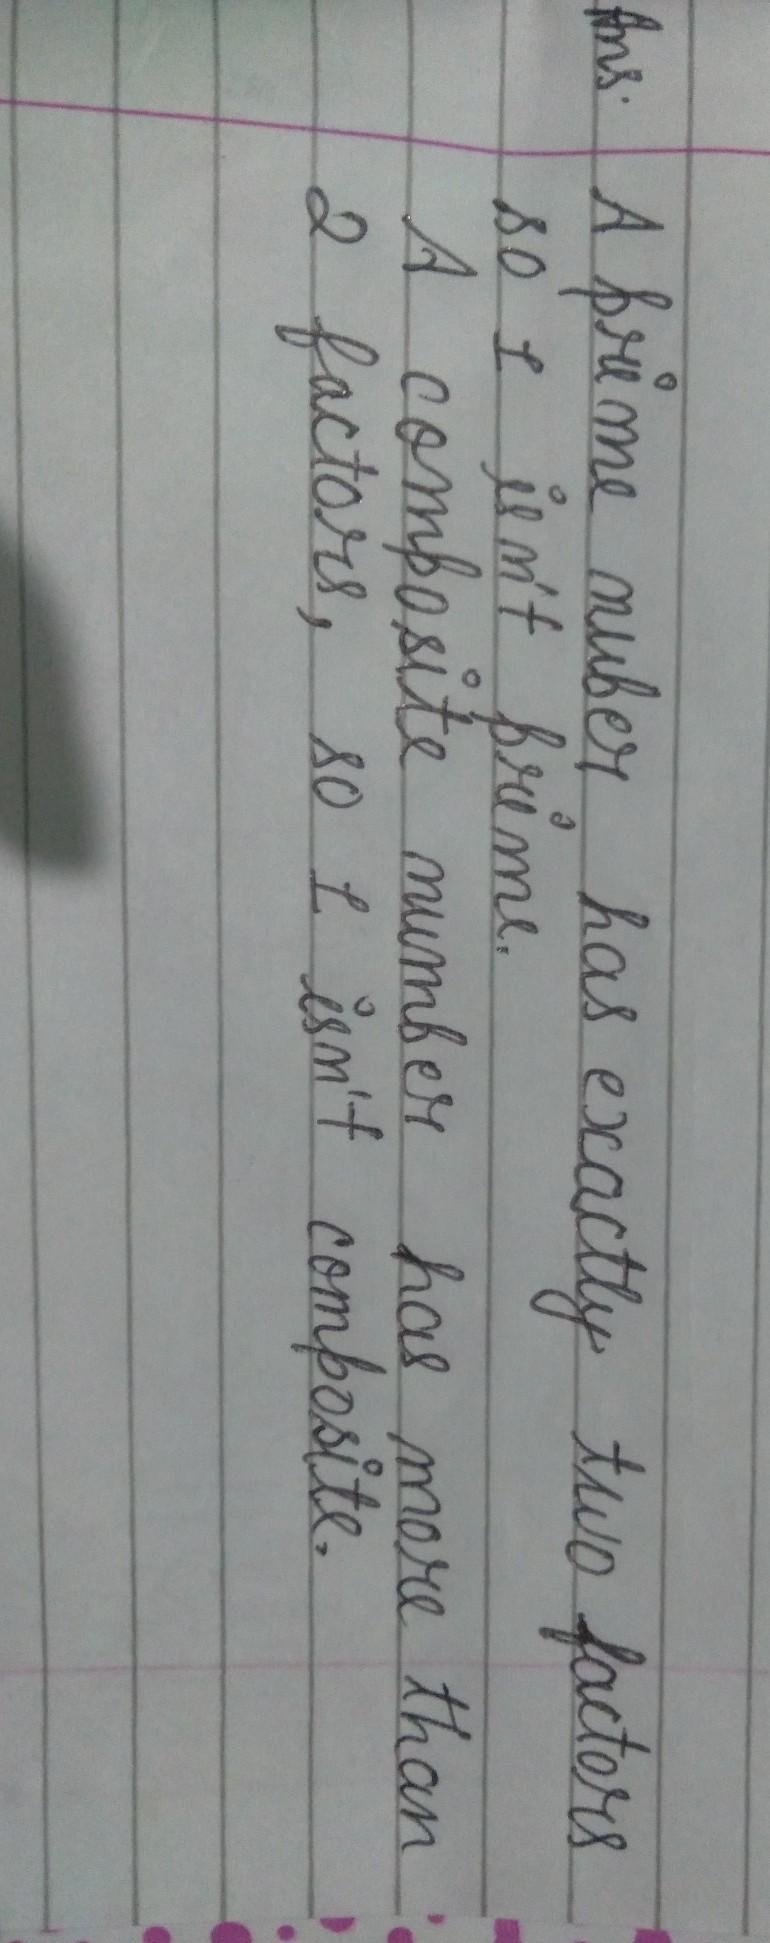 Ans. A prime nuber has exactly two factors
so 1 isn't prime.
A composite number has more than
2 factors, so 1 isn't composite.